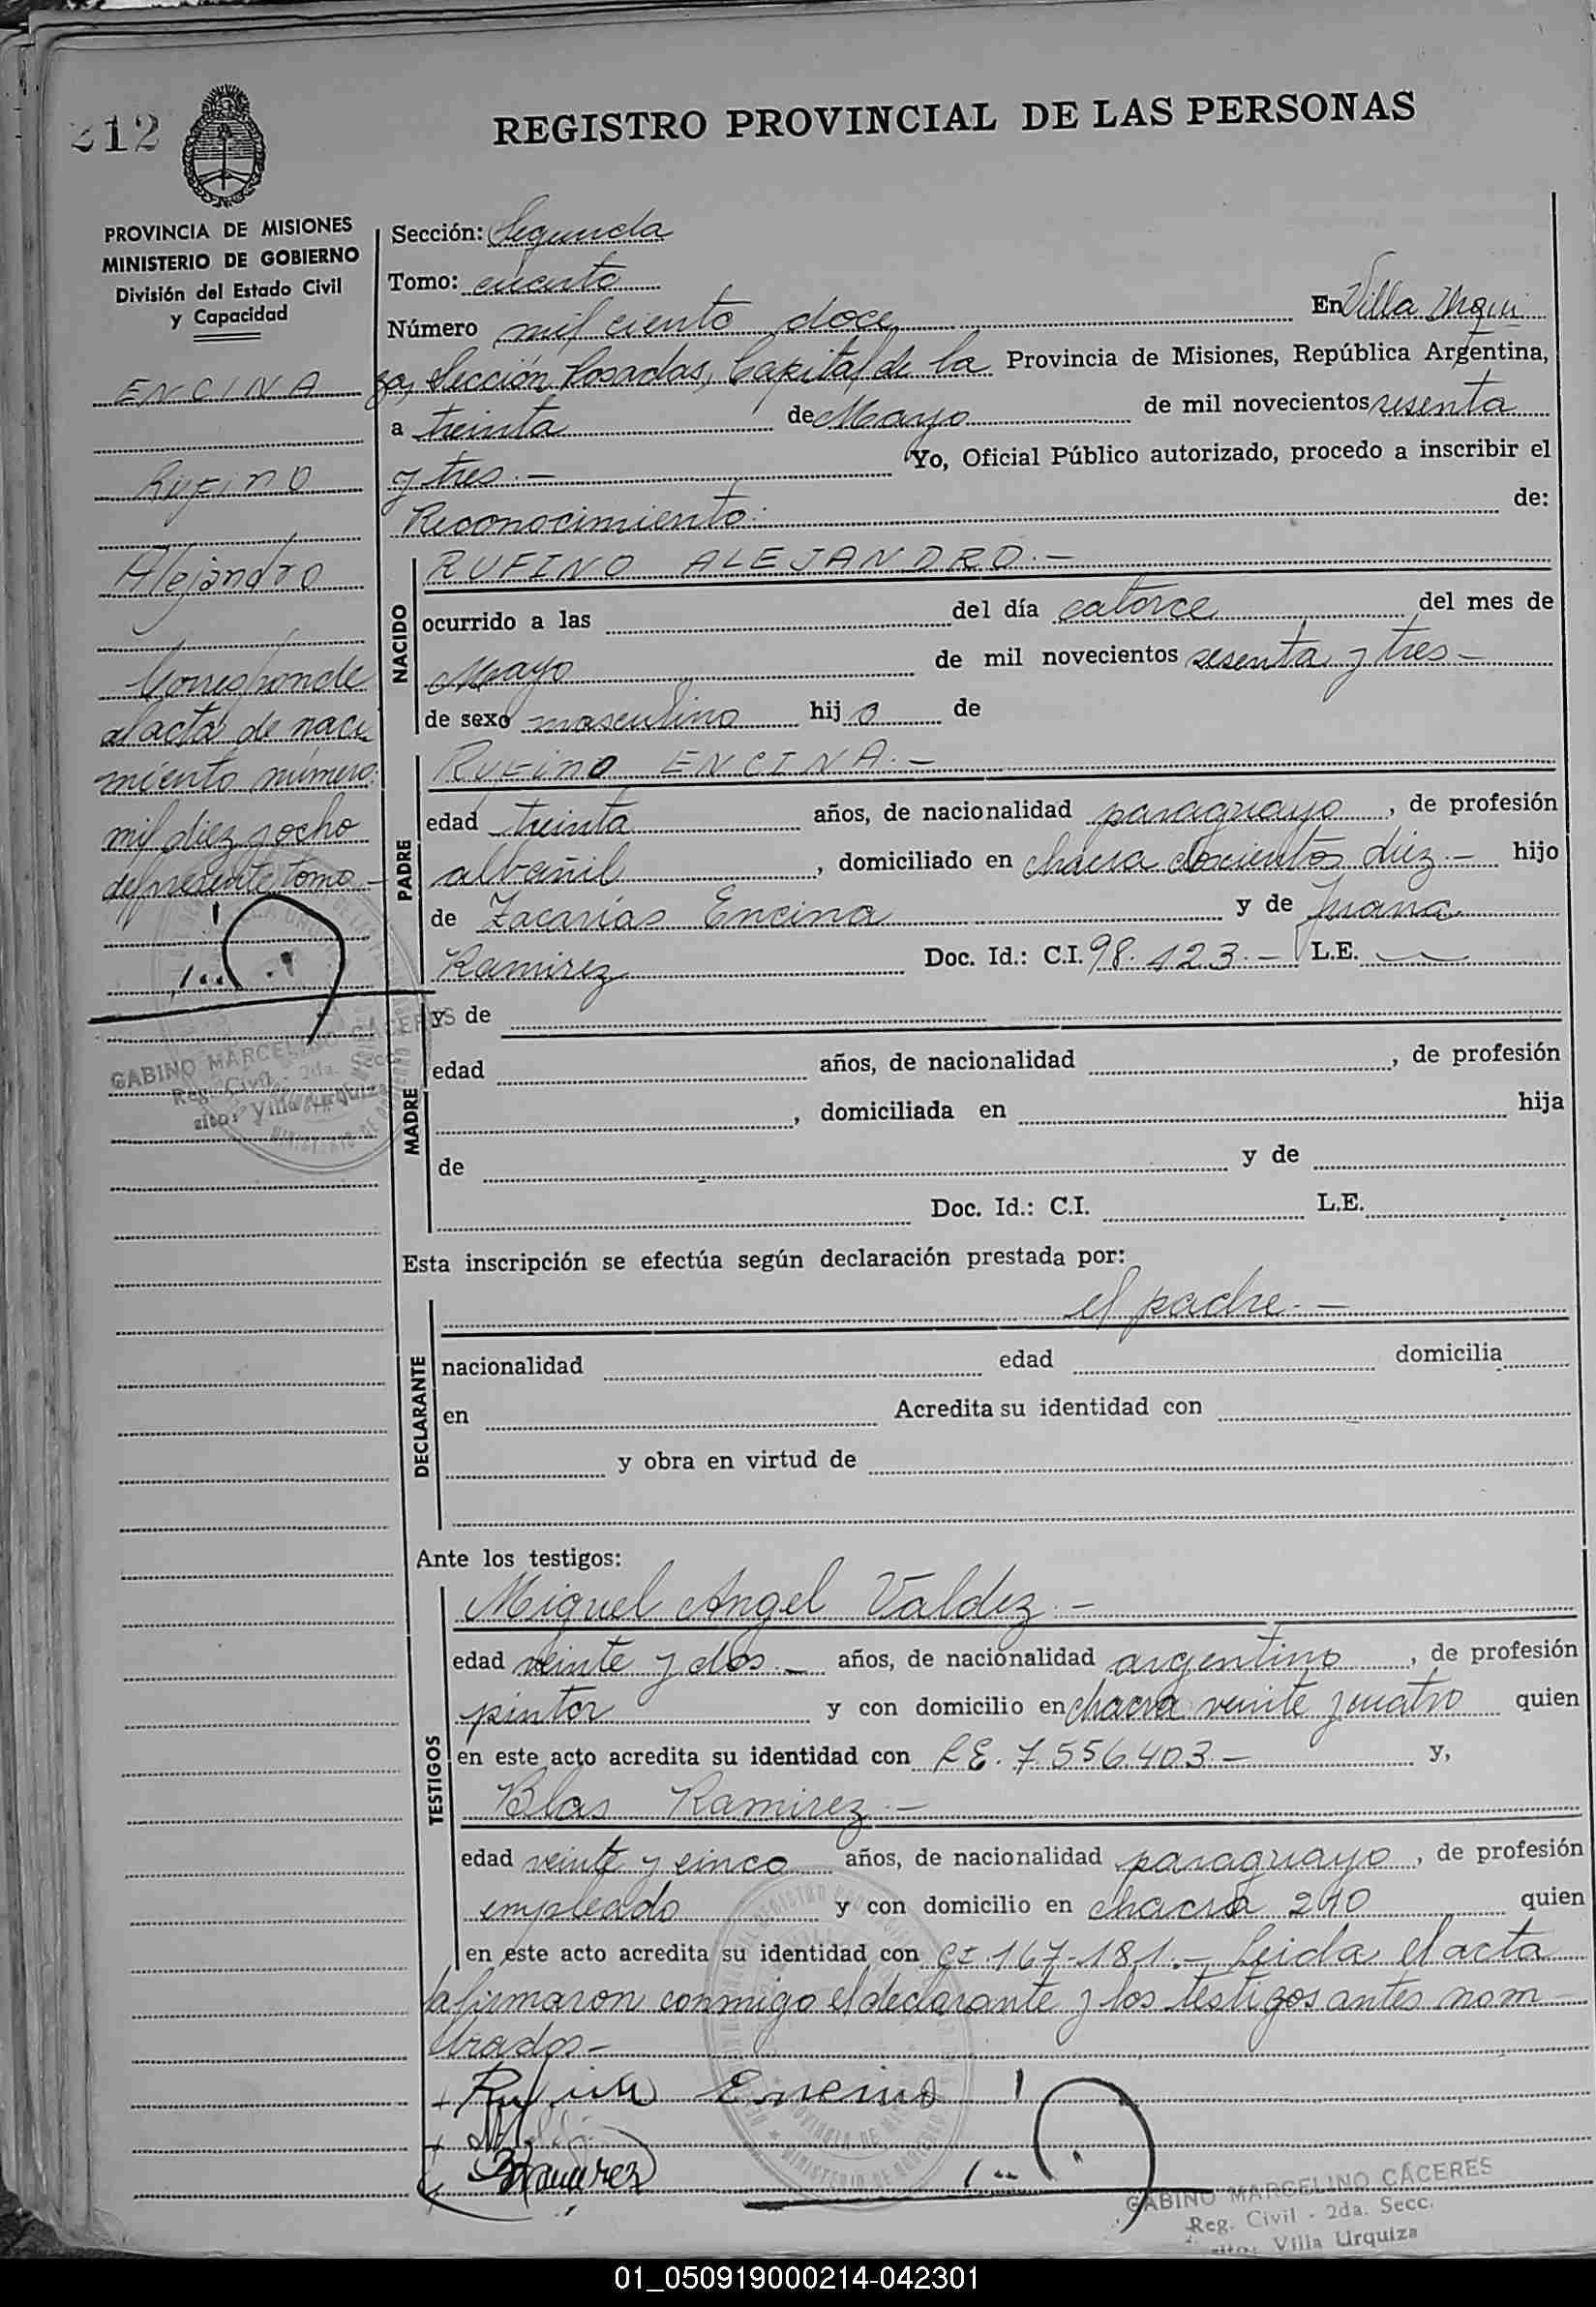 212
REGISTRO PROVINCIAL DE LAS PERSONAS
PROVINCIA DE MISIONES
MINISTERIO DE GOBIERNO
División del Estado Civil
y Capacidad
ENCINA
Rufino
Alejandro
Corresponde
al acta de naci
miento número:
mil diez y ocho
del presente tomo -
GABINO MARCELINO CACERES
Reg. Civil - 2da. Secc.
sito: Villa Urquiza
Sección: Segunda
Tomo: cuarto
Número mil ciento doce En Villa Urqui
za, Sección Posadas, Capital de la Provincia de Misiones, República Argentina,
a treinta de Mayo de mil novecientos sesenta
y tres.- Yo, Oficial Público autorizado, procedo a inscribir el
Reconocimiento: de:
NACIDO
RUFINO ALEJANDRO.-
ocurrido a las del día catorce del mes de
Mayo de mil novecientos sesenta y tres -
de sexo masculino hij o de
PADRE
Rufino ENCINA.-
edad treinta años, de nacionalidad paraguayo, de profesión
albañil, domiciliado en chacra doscientos diez.- hijo
de Zacarías Encina y de Juana
Ramirez Doc. Id.: C.I. 98.123.- L.E. —
MADRE
y de
edad años, de nacionalidad , de profesión
, domiciliada en hija
de y de
Doc. Id.: C.I. L.E.
Esta inscripción se efectúa según declaración prestada por:
el padre.-
DECLARANTE
nacionalidad edad domicilia
en Acredita su identidad con
y obra en virtud de
Ante los testigos:
TESTIGOS
Miguel Angel Valdez.-
edad veinte y dos.- años, de nacionalidad argentino, de profesión
pintor y con domicilio en chacra veinte y cuatro quien
en este acto acredita su identidad con L.E. 7.556.403.- y,
Blas Ramirez.-
edad veinte y cinco años, de nacionalidad paraguayo, de profesión
empleado y con domicilio en chacra 210 quien
en este acto acredita su identidad con CI. 167-181.- Leida el acta
la firmaron conmigo el declarante y los testigos antes nom
brados-
Rufino Encina
BRamirez
GABINO MARCELINO CÁCERES
Reg. Civil - 2da. Secc.
sito: Villa Urquiza
01_050919000214-042301